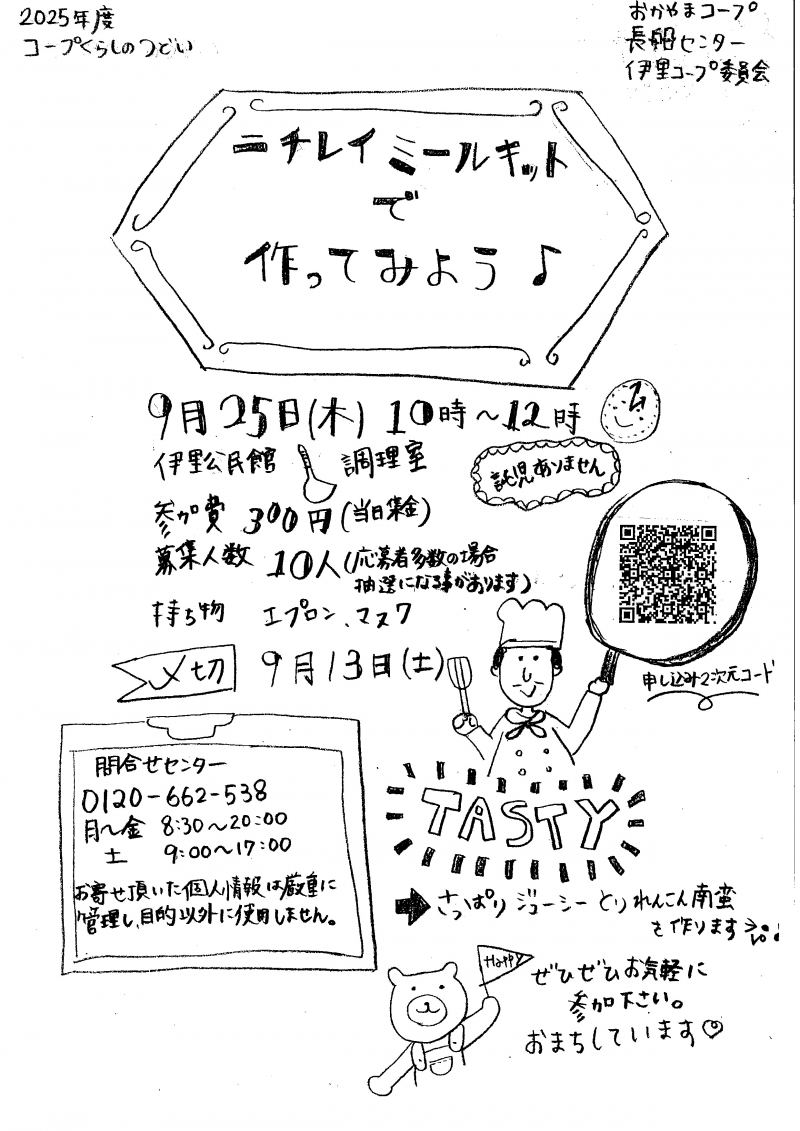 2025年度
コープくらしのつどい
おかやまコープ
長船センター
伊里コープ委員会
ニチレイミールキット
で
作ってみよう♪
9月25日(木) 10時〜12時
伊里公民館 調理室
託児ありません
参加費 300円(当日集金)
募集人数 10人(応募者多数の場合
抽選になる事があります)
持ち物 エプロン、マスク
〆切 9月13日(土)
申し込み2次元コード
問合せセンター
0120-662-538
月〜金 8:30〜20:00
土 9:00〜17:00
お寄せ頂いた個人情報は厳重に
管理し、目的以外に使用しません。
TASTY
➡さっぱりジューシーとりれんこん南蛮
を作ります
Happy
ぜひぜひお気軽に
参加下さい。
おまちしています♡